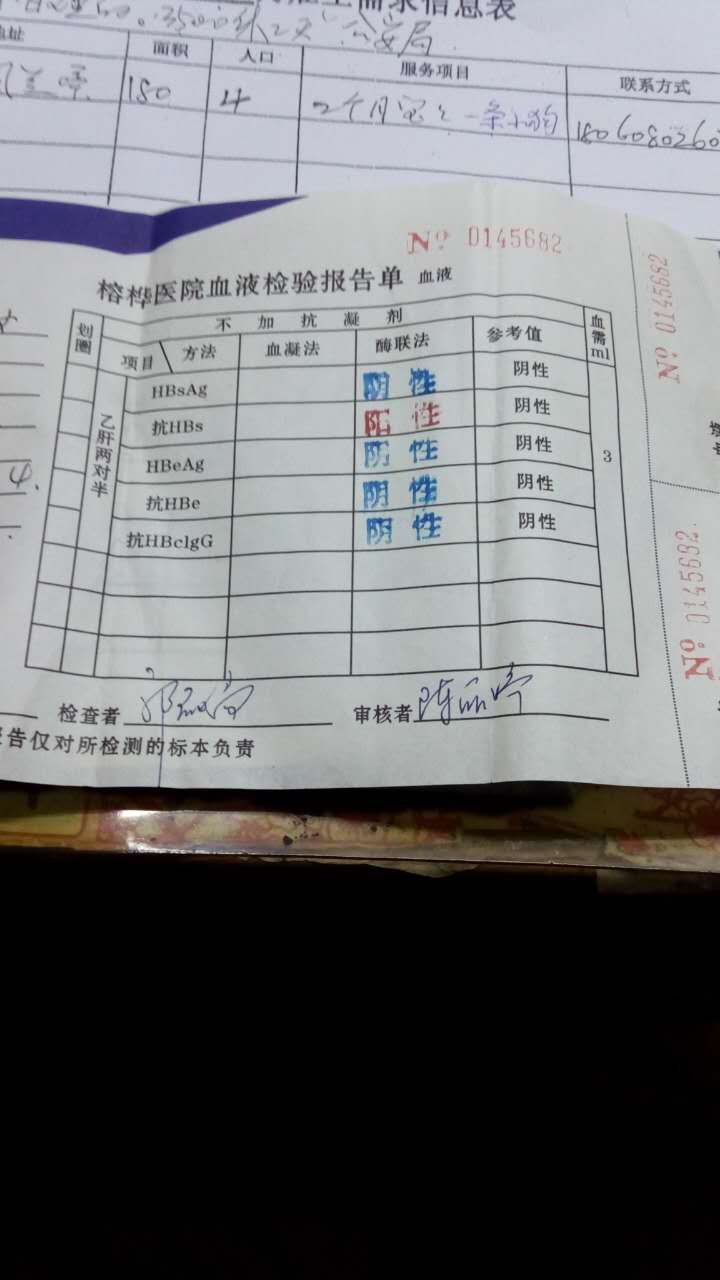 需求信息表
公安局
面积 人口 服务项目 联系方式
150 4 2个月宝宝 一条小狗 1806080260
No 0145682
榕桦医院血液检验报告单 血液
划圈 不加抗凝剂 血需ml
项目 方法 血凝法 酶联法 参考值
乙肝两对半 HBsAg 阴性 阴性 3
抗HBs 阳性 阴性
HBeAg 阴性 阴性
抗HBe 阴性 阴性
抗HBclgG 阴性 阴性
4.
检查者 审核者
告仅对所检测的标本负责
No 0145682
No 0145682